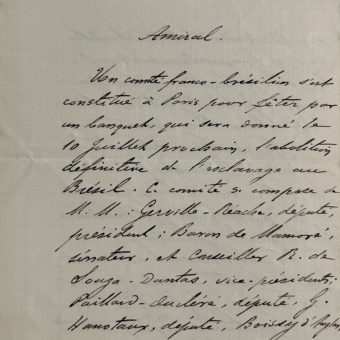 Amiral.
Un comité franco-brésilien s'est
constitué à Paris pour fêter par
un banquet, qui sera donné le
10 juillet prochain, l'abolition
définitive de l'esclavage au
Brésil. Ce comité se compose de
M. M. : Gerville-Réache, député,
président ; Baron de Mamoré,
sénateur, et Conseiller R. de
Souza-Dantas, vice-présidents ;
Paillard-Ducléré, député, G.
Hanotaux, député, Boissy d'Anglas